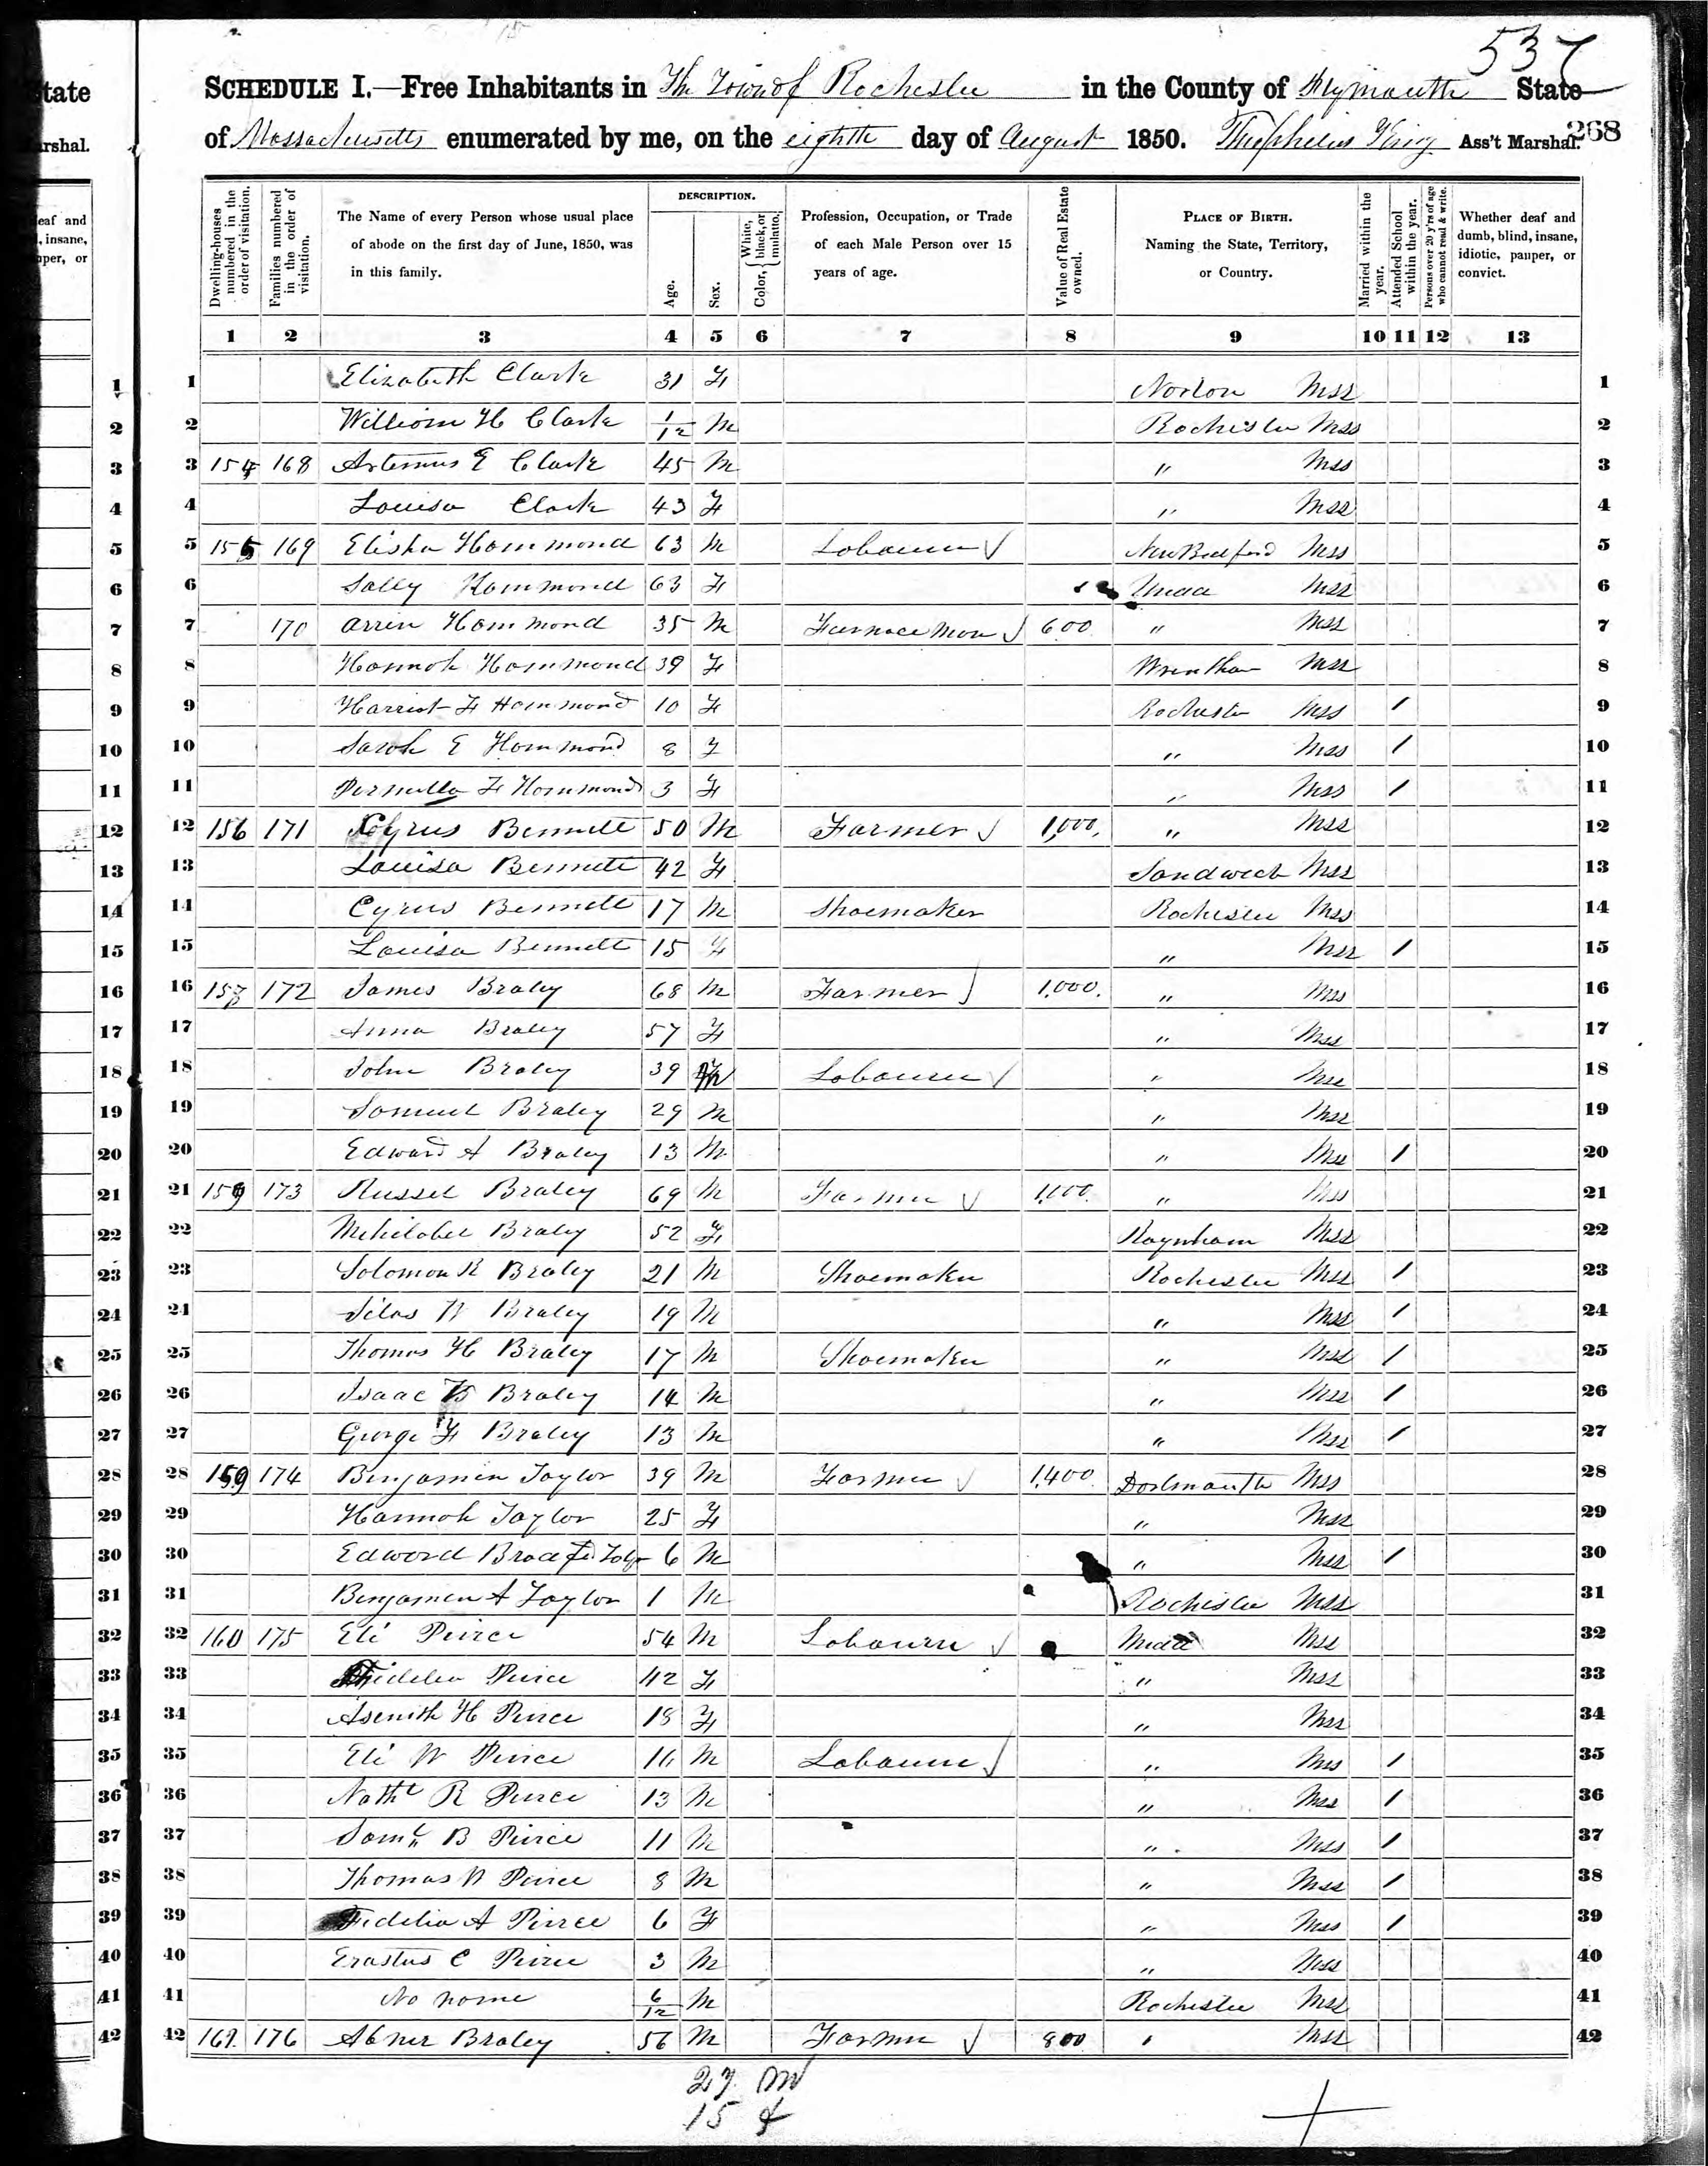 537
SCHEDULE I.—Free Inhabitants in The Town of Rochester in the County of Plymouth State
of Massachusetts enumerated by me, on the eighth day of August 1850. Theophilus King Ass't Marshal.
268
tate
arshal.
eaf and
, insane,
per, or
Dwelling-houses numbered in the order of visitation.
Families numbered in the order of visitation.
The Name of every Person whose usual place of abode on the first day of June, 1850, was in this family.
DESCRIPTION.
Age.
Sex.
Color, { White, black, or mulatto.
Profession, Occupation, or Trade of each Male Person over 15 years of age.
Value of Real Estate owned.
PLACE OF BIRTH. Naming the State, Territory, or Country.
Married within the year.
Attended School within the year.
Persons over 20 y'rs of age who cannot read & write.
Whether deaf and dumb, blind, insane, idiotic, pauper, or convict.
1 2 3 4 5 6 7 8 9 10 11 12 13
1 1 Elizabeth Clark 31 F Norton Mss 1
2 2 William H Clark 1/12 M Rochester Mss 2
3 3 154 168 Artemus E Clark 45 M " Mss 3
4 4 Louisa Clark 43 F " Mss 4
5 5 155 169 Elisha Hammond 63 M Labourer New Bedford Mss 5
6 6 Sally Hammond 63 F Mss 6
7 7 170 Arrin Hammond 35 M Furnace Man 600 " Mss 7
8 8 Hannah Hammond 39 F Wrentham Mss 8
9 9 Harriet F Hammond 10 F Rochester Mss / 9
10 10 Sarah E Hammond 8 F " Mss / 10
11 11 Permilla F Hammond 3 F " Mss / 11
12 12 156 171 Cyrus Bennett 50 M Farmer 1,000. " Mss 12
13 13 Louisa Bennett 42 F Sandwich Mss 13
14 14 Cyrus Bennett 17 M Shoemaker Rochester Mss 14
15 15 Louisa Bennett 15 F " Mss / 15
16 16 157 172 James Braley 68 M Farmer 1,000. " Mss 16
17 17 Anna Braley 57 F " Mss 17
18 18 John Braley 39 M Labourer " Mss 18
19 19 Samuel Braley 29 M " Mss 19
20 20 Edward A Braley 13 M " Mss / 20
21 21 173 Russel Braley 69 M Farmer 1,000. " Mss 21
22 22 Mehitabel Braley 52 F Raynham Mss 22
23 23 Solomon R Braley 21 M Shoemaker Rochester Mss / 23
24 24 Silas Braley 19 M " Mss / 24
25 25 Thomas H Braley 17 M Shoemaker " Mss / 25
26 26 Isaac B Braley 14 M " Mss / 26
27 27 George F Braley 13 M " Mss / 27
28 28 159 174 Benjamin Taylor 39 M Farmer 1,400 Dartmouth Mss 28
29 29 Hannah Taylor 25 F " Mss 29
30 30 Edward 6 M " Mss / 30
31 31 Benjamin A Taylor 1 M Rochester Mss 31
32 32 160 175 Eli Peirce 54 M Labourer Midd Mss 32
33 33 Fidelia Peirce 42 F " Mss 33
34 34 Asenith H Peirce 18 F " Mss 34
35 35 Eli W Peirce 16 M Labourer " Mss / 35
36 36 Nathl R Peirce 13 M " Mss / 36
37 37 Saml B Peirce 11 M " Mss / 37
38 38 Thomas Peirce 8 M " Mss / 38
39 39 Fidelia A Peirce 6 F " Mss / 39
40 40 Erastus C Peirce 3 M " Mss 40
41 41 No name 6/12 M Rochester Mss 41
42 42 176 Abner Braley 56 M Farmer 800 " Mss 42
27 M
15 F